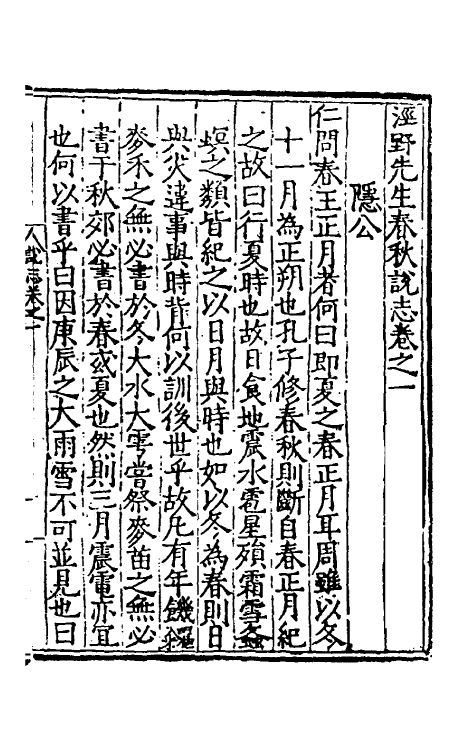 涇野先生春秋說志卷之一
隱公
仁問春王正月者何曰即夏之春正月耳周雖以冬
十一月為正朔也孔子修春秋則斷自春正月紀
之故曰行夏時也故日食地震水雹星殞霜雪螽
螟之類皆紀之以日月與時也如以冬為春則日
與次違事與時背何以訓後世乎故凡有年饑
麥禾之無必書於冬大水大雩嘗祭麥苗之無必
書于秋郊必書於春或夏也然則三月震電亦宜
也何以書乎曰因庚辰之大雨雪不可並見也曰
說志卷之一